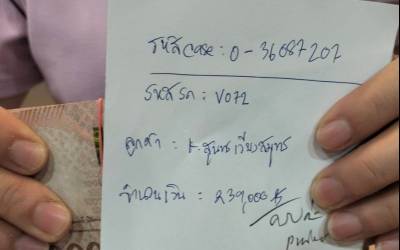 รหัส case : 0-36087207
รหัสรถ : V072
ลูกค้า : K. สุนทร เวียงสมุทร
จำนวนเงิน : 239,000 ฿